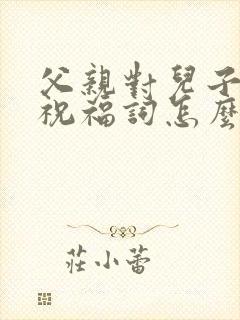 父親對兒子
祝福詞怎麼
莊小蕾